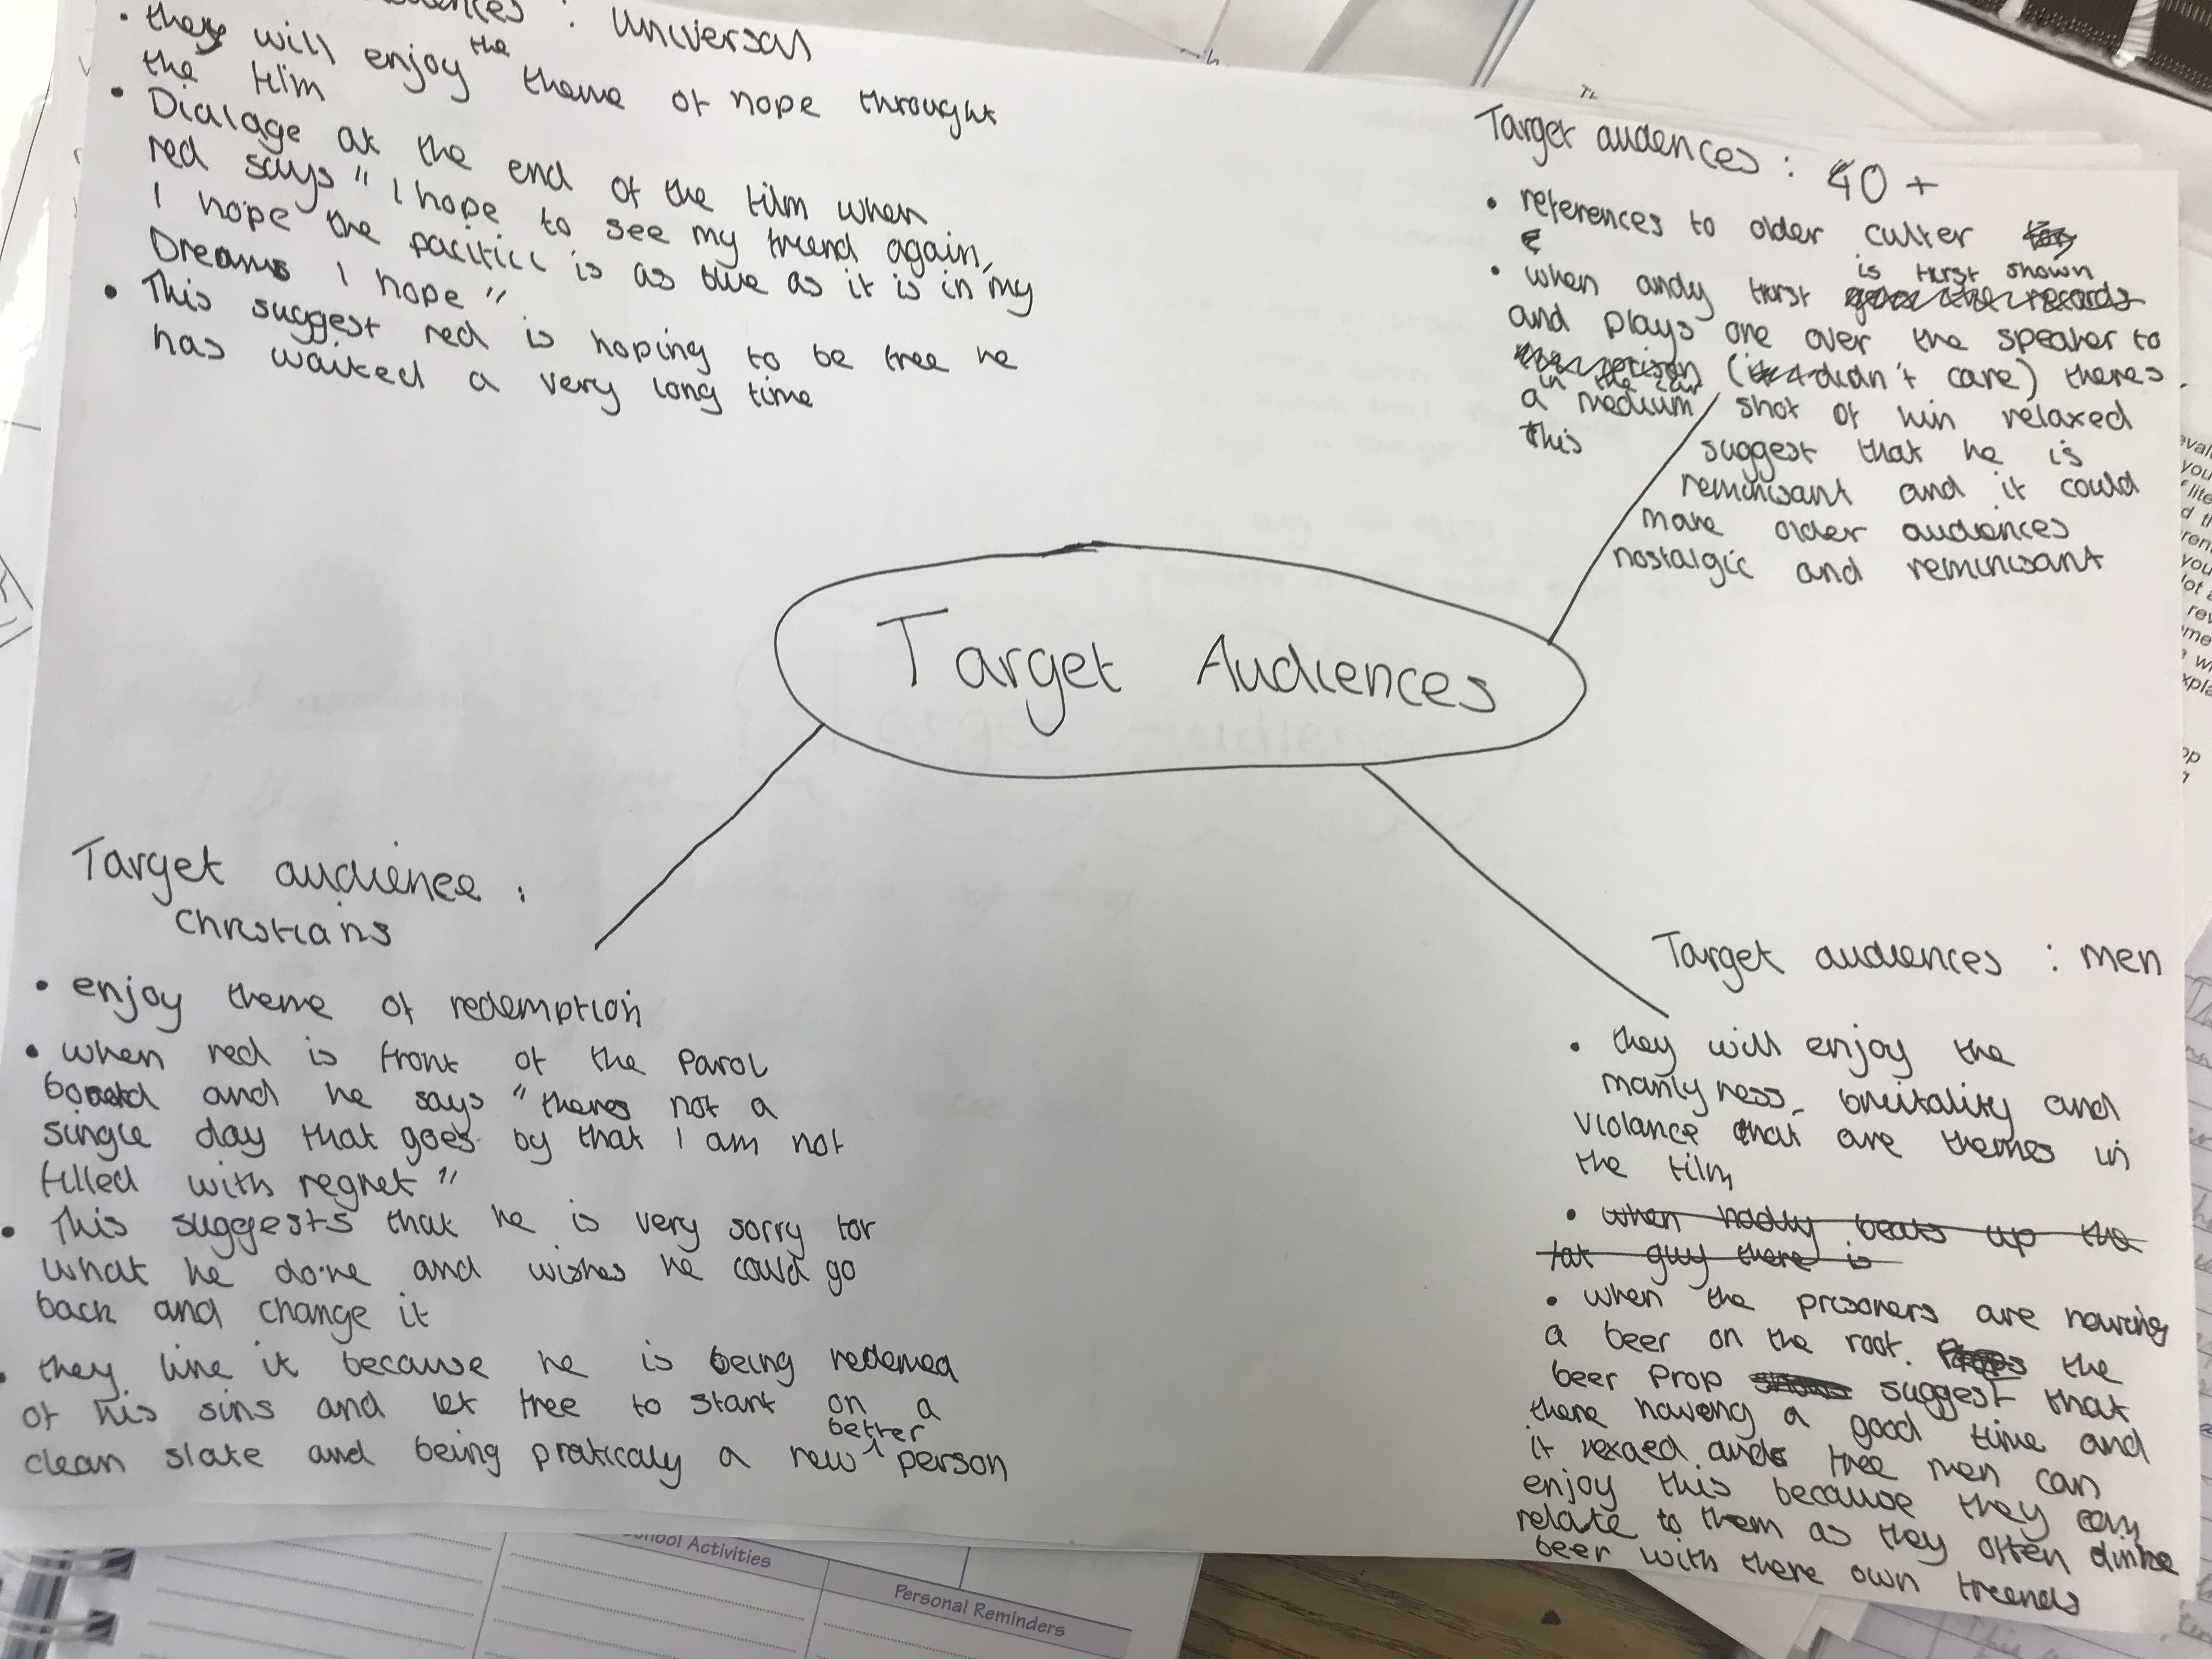 : Universal
• they will enjoy the theme of hope throught
the film
• Dialage at the end of the film when
red says "I hope to see my friend again,
I hope the pacific is as blue as it is in my
Dreams I hope"
• This suggest red is hoping to be free he
has waited a very long time
Target audences : 40 +
• references to older culter
• when andy furst is furst shown
and plays one over the speaker to
in the car (didn't care) theres
a medium shot of him relaxed
This suggest that he is
reminisant and it could
make older audiences
nostalgic and reminisant
Target Audiences
Target audience :
Christians
• enjoy theme of redemption
• when red is front of the Parol
board and he says "theres not a
single day that goes by that I am not
filled with regret"
• This suggests that he is very sorry for
what he done and wishes he could go
back and change it
• they like it because he is being redemed
of his sins and let free to start on a
clean slate and being praticaly a new better person
Target audiences : men
• they will enjoy the
manlyness, brutality and
violance that are themes in
the film
• when hadly beats up the
fat guy there is
• when the prisoners are having
a beer on the roof. the
beer Prop suggest that
there having a good time and
it rexaed and free men can
enjoy this because they can
relate to them as they often drinke
beer with there own freends
School Activities
Personal Reminders